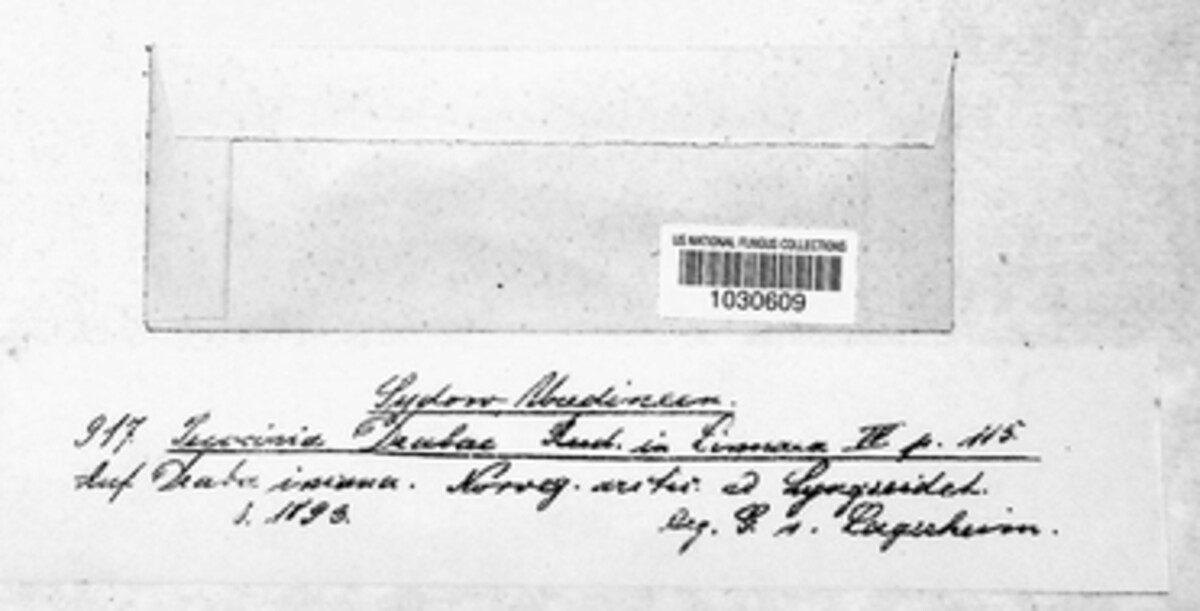 US NATIONAL FUNGUS COLLECTIONS
1030609
Sydow Uredineen.
917. Puccinia Drabae Rud. in Linnaea IV p. 115
Auf Draba incana. Norveg. arctic. ad Lyngseidet.
1893.
leg. G. v. Lagerheim.